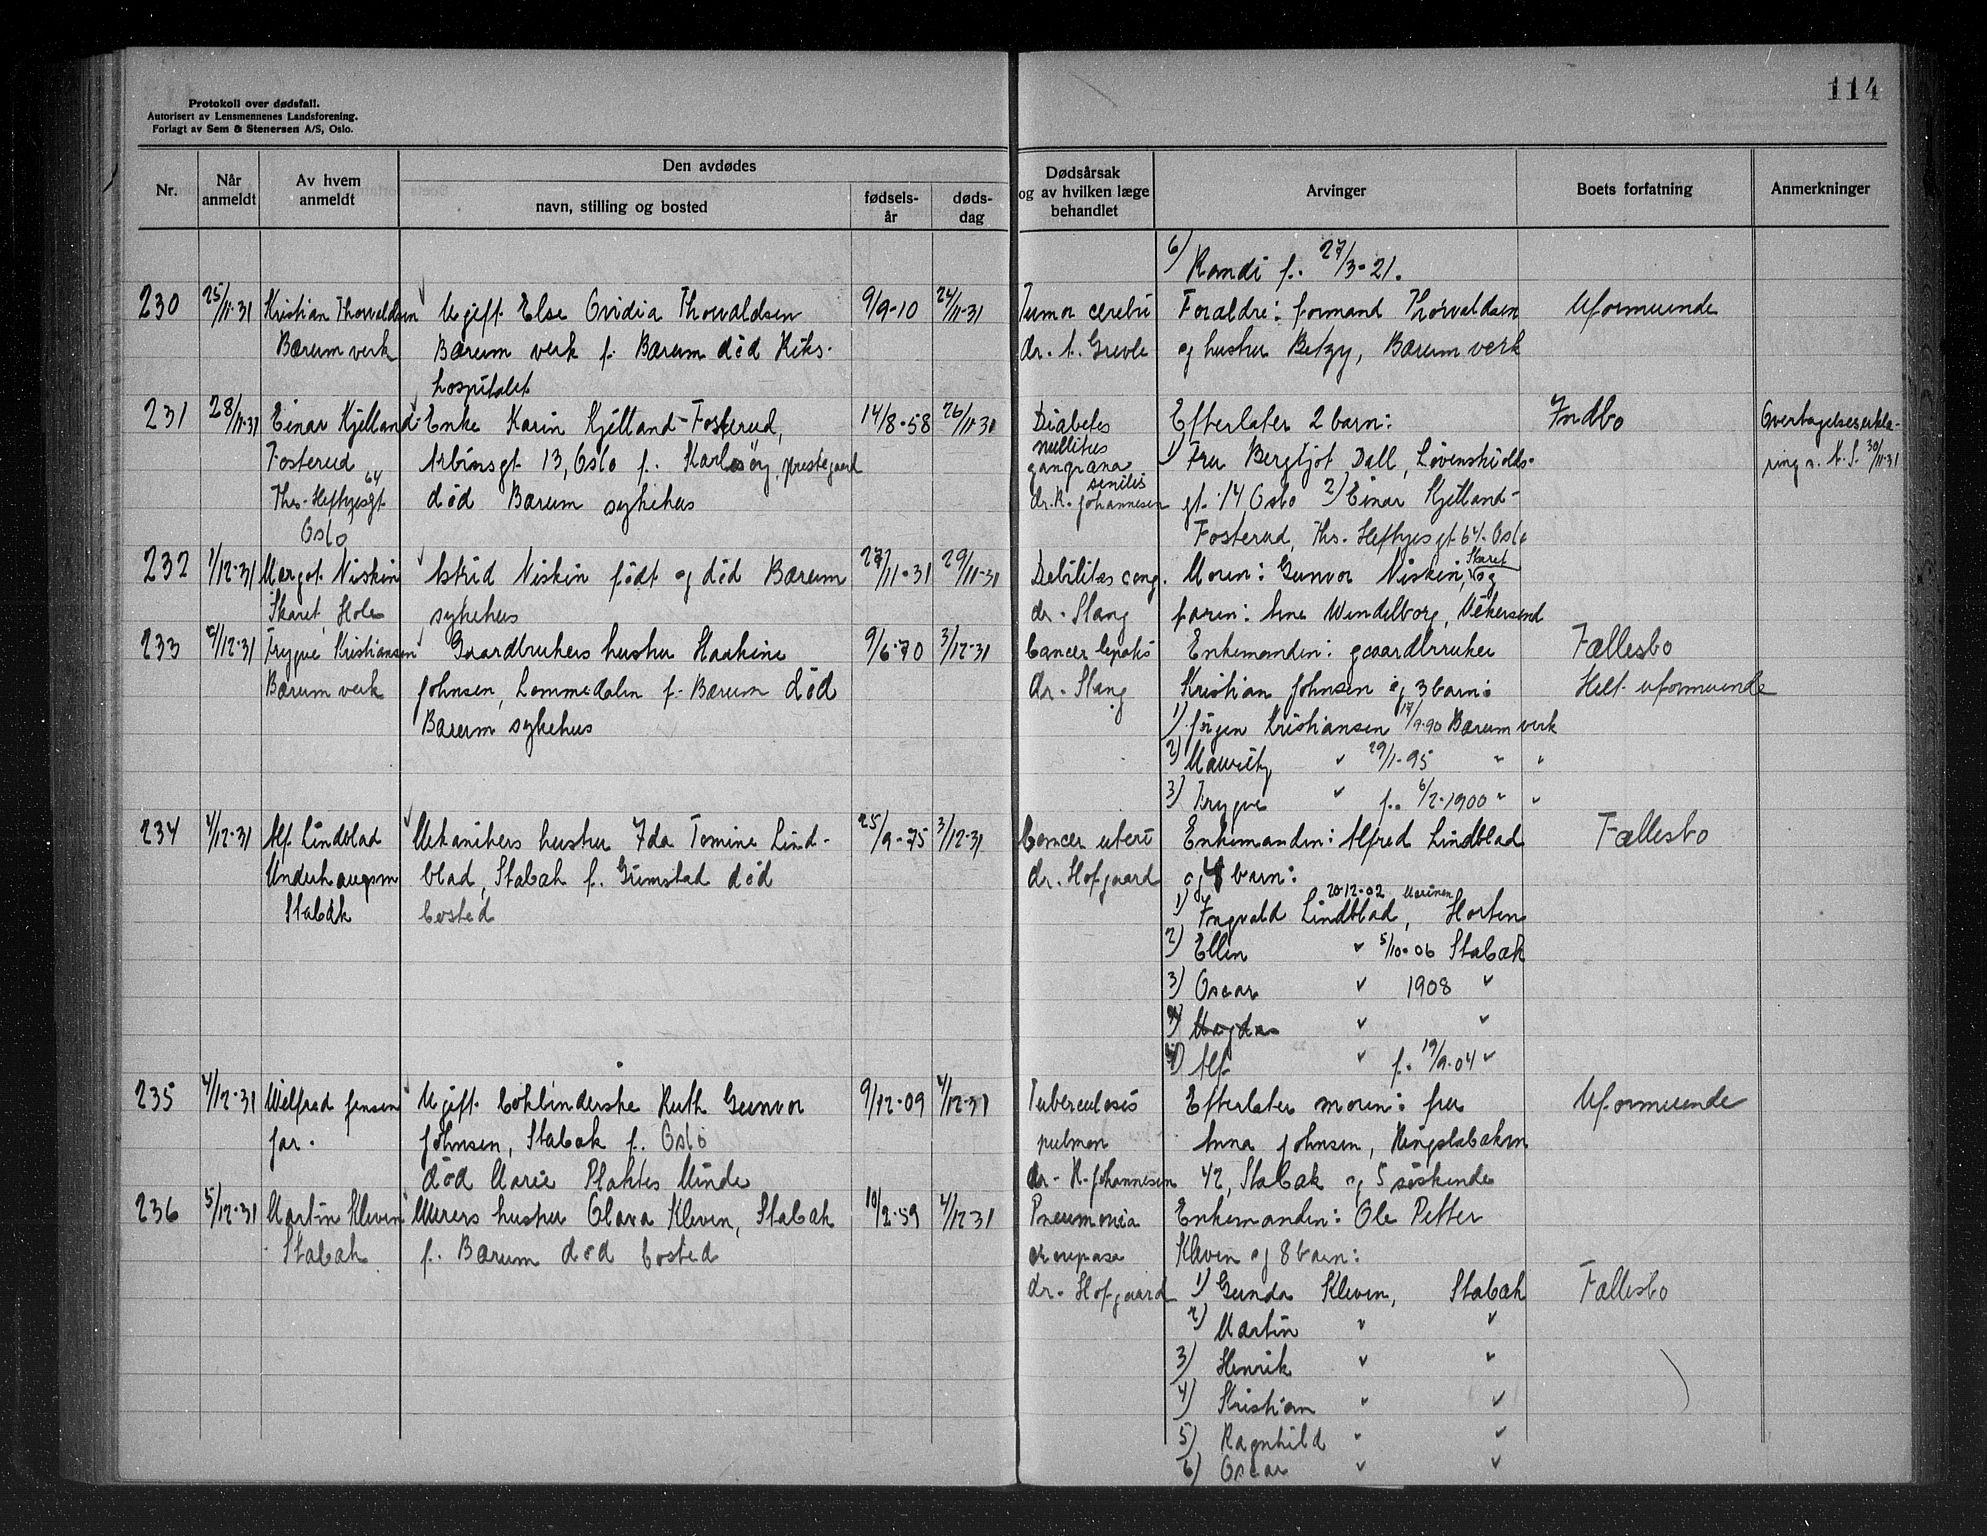 114
Protokoll over dødsfall.
Autorisert av Lensmennenes Landsforening.
Forlagt av Sem & Stenersen A/S, Oslo.
Nr.
Når anmeldt
Av hvem anmeldt
Den avdødes
navn, stilling og bosted
fødsels-år
døds-dag
Dødsårsak og av hvilken læge behandlet
Arvinger
Boets forfatning
Anmerkninger
6) Randi f. 27/3-21.
230 25/11-31 Kristian Thorvaldsen Ugift Else Ovidia Thorvaldsen 9/9-10 24/11-31 Tumor cerebri Foraldre: formand Thorvaldsen Uformuende
Bærum verk Bærum verk f. Bærum død Riks- dr. A. Grevle og hustru Betzy, Bærum verk
hospitalet
231 28/11-31 Einar Kjelland- Enke Karin Kjelland-Fosterud, 14/8-58 26/11-31 Diabetes Efterlater 2 barn: Indbo Overtagelseserklæ-
Fosterud Arbinsgt 13, Oslo f. prestegaard mellitus gangræna 1) Fru Bergljot Dall, Løvenskiolds- ring s. A. S. 30/11-31
Ths. Heftyesgt 64 død Bærum sykehus senilis dr. R. Johannesen gt. 14 Oslo 2) Einar Kjelland-
Oslo Fosterud, Ths. Heftyesgt 64. Oslo
232 1/12-31 Margot Niskin Astrid Niskin født og død Bærum 27/11-31 29/11-31 Debilitas cong. Moren: Gunvor Niskin, Skaret og
Skaret, Hole sykehus dr. Stang faren: Arne Wendelborg, Vikersund
233 4/12-31 Trygve Kristiansen Gaardbrukers hustru Haakine 9/6-70 3/12-31 Cancer hepatis Enkemanden: gaardbruker Fællesbo
Bærum verk Johnsen, Lommedalen f. Bærum død dr. Stang Kristian Johnsen og 3 barn: Helt uformuende
Bærum sykehus 1) Jørgen Kristiansen 17/9-90 Bærum verk
2) Mauritz " 29/1-95 " "
3) Trygve " f. 6/2-1900 " "
234 4/12-31 Alf Lindblad Mekanikers hustru Ida Tomine Lind- 25/9-75 3/12-31 Cancer uteri Enkemanden: Alfred Lindblad Fællesbo
Underhaugsvn blad, Stabæk f. Grimstad død dr. Hofgaard og 4 barn:
Stabæk bosted 1) Ingvald Lindblad, 20-12-02 Marinen Horten
2) Ellen " 5/10-06 Stabæk
3) Oscar " 1908 "
4) Magda " "
4) Alf " f. 19/9-04 "
235 4/12-31 Wilfred Jensen Ugift bokbinderske Ruth Gunvor 9/12-09 4/12-31 Tuberculosis Efterlater moren: fru Uformuende
far. Johnsen, Stabæk f. Oslo pulmon Anna Johnsen, Ringstabækvn
død Marie Plahtes Minde dr. R. Johannesen 42, Stabæk og 5 søskende
236 5/12-31 Martin Kleven Murers hustru Clara Kleven, Stabæk 10/2-59 4/12 31 Pneumonia Enkemanden: Ole Petter
Stabæk f. Bærum død bosted crouposa Kleven og 8 barn:
dr. Hofgaard 1) Gunda Kleven, Stabæk Fællesbo
2) Martin " "
3) Henrik " "
4) Kristian " "
5) Ragnhild " "
6) Oscar " "